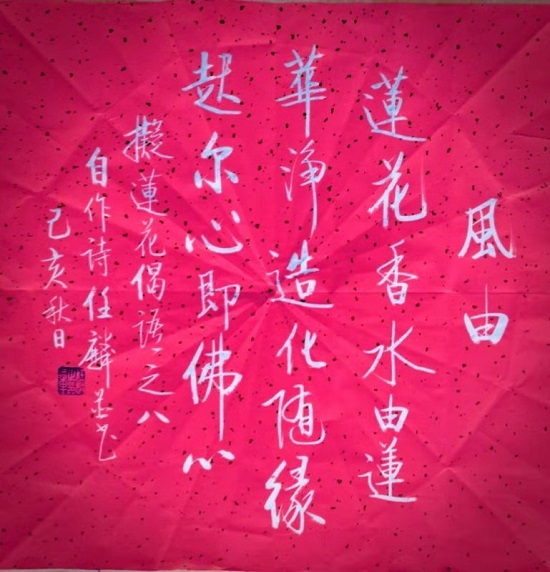 風由
蓮花香水由蓮
華淨造化随緣
起尔心即佛心
擬蓮花偶語之八
自作詩任麟並书
己亥秋日